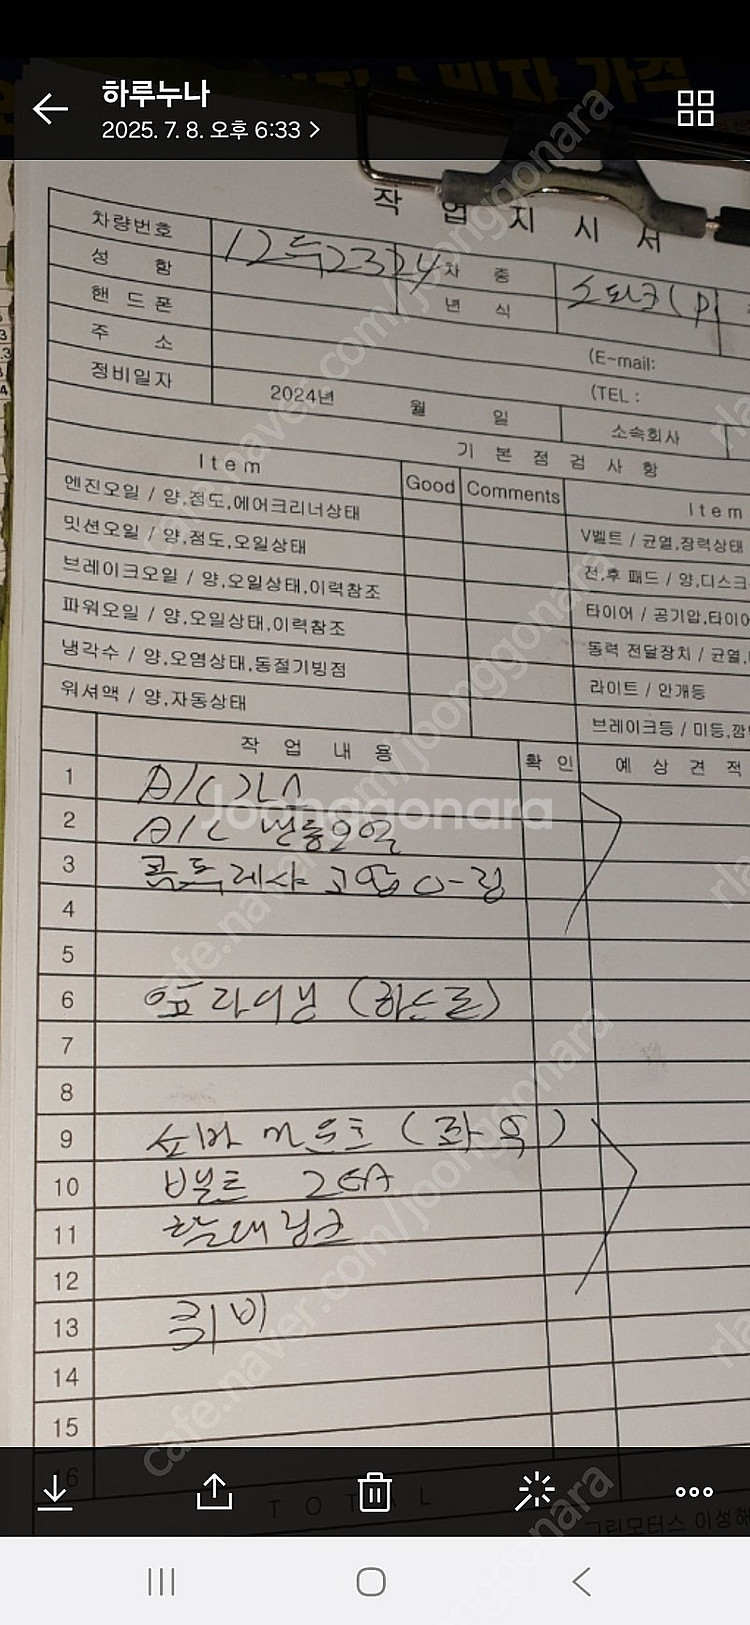 하루누나
2025. 7. 8. 오후 6:33 >
작 업 지 시 서
차량번호 12두2324 차 종 스파크(P)
성 함 년 식
핸 드 폰
주 소 (E-mail:
정비일자 2024년 월 일 (TEL :
소속회사
기 본 점 검 사 항
Item Good Comments Item
엔진오일 / 양,점도,에어크리너상태
밋션오일 / 양,점도,오일상태 V벨트 / 균열,장력상태
브레이크오일 / 양,오일상태,이력참조 전,후 패드 / 양,디스크
파워오일 / 양,오일상태,이력참조 타이어 / 공기압,타이어
냉각수 / 양,오염상태,동절기빙점 동력 전달장치 / 균열,
워셔액 / 양,자동상태 라이트 / 안개등
브레이크등 / 미등,깜
작 업 내 용 확 인 예 상 견 적
1 A/C 가스
2 A/C 냉동오일
3 콤프레샤 고압 O-링
4
5
6 앞 라이닝 (하드론)
7
8
9 쇼바 마운트 (좌 우)
10 볼트 2EA
11 활대링크
12
13
14
15
16
TOTAL
그린모터스 이성해
Joonggonara
cafe.naver.com/joonggonara